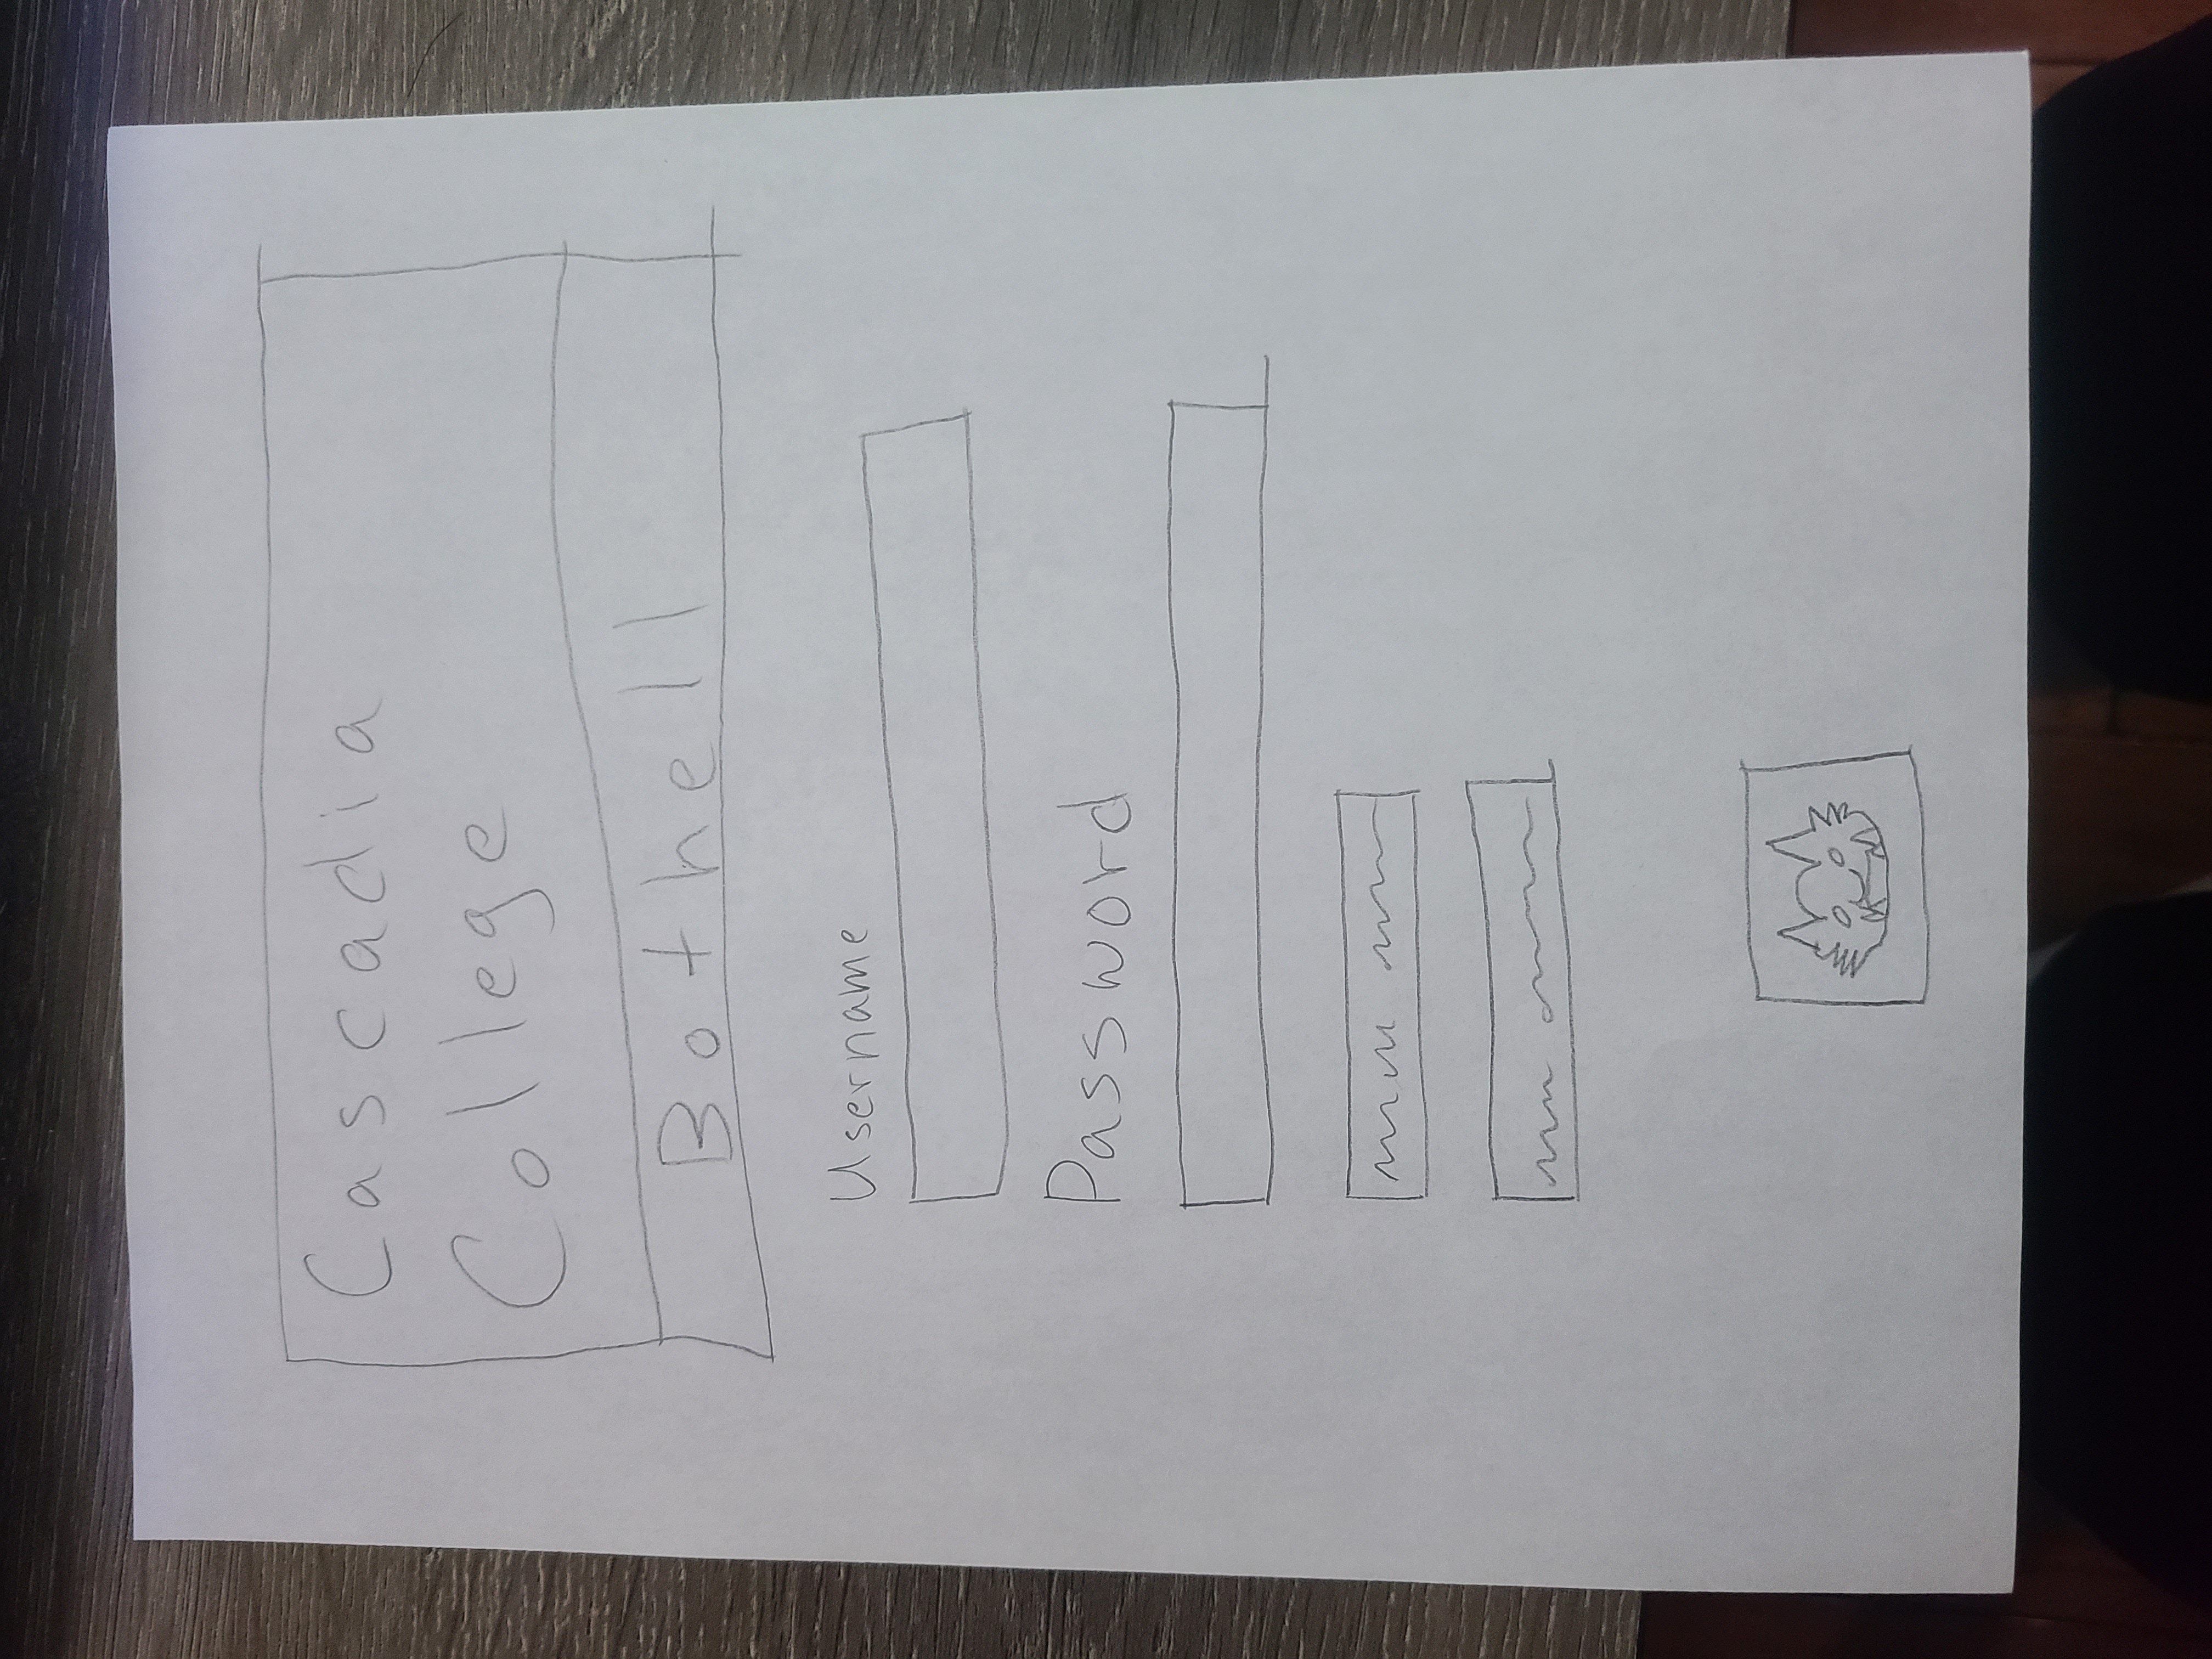 Cascadia
College
Bothell
Username
Password